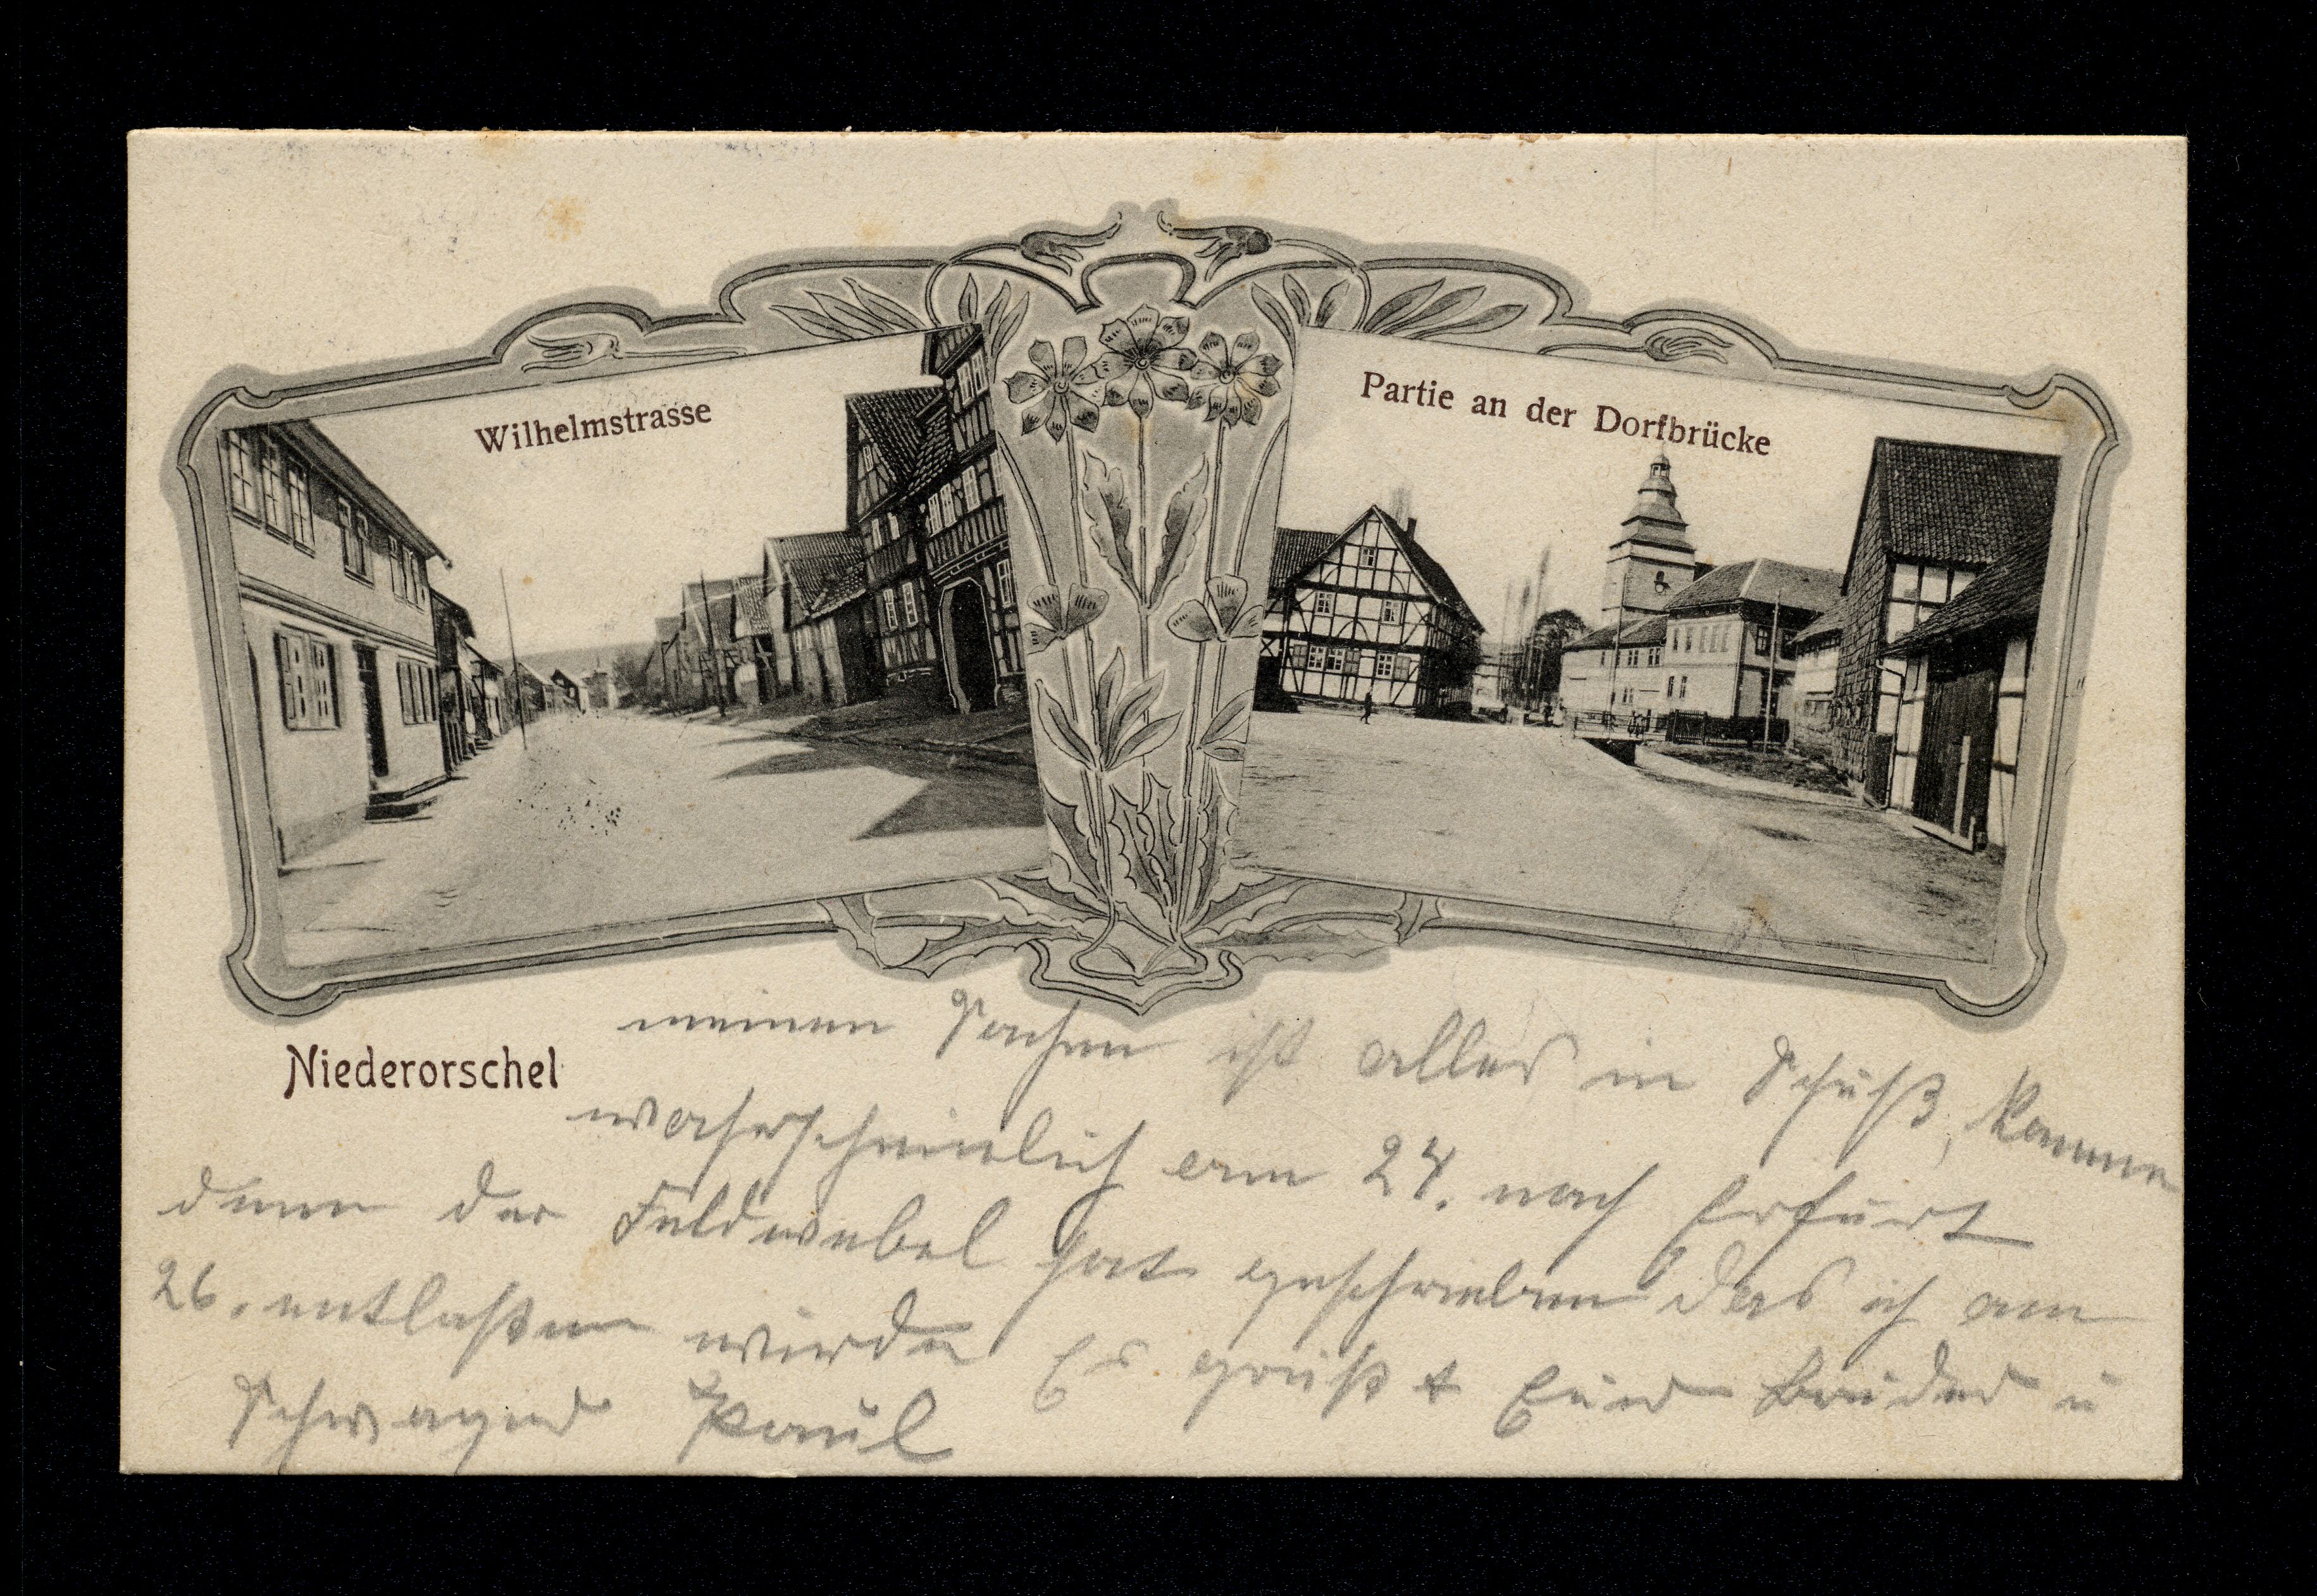 Wilhelmstrasse
Partie an der Dorfbrücke
Niederorschel
meinen Sachen ist alles in Schuß, komme
wahrscheinlich am 24. nach Erfurt
denn der Feldwebel hat geschrieben das ich am
26. entlaßen würde Es grüßt Euer Bruder u
Schwager Paul